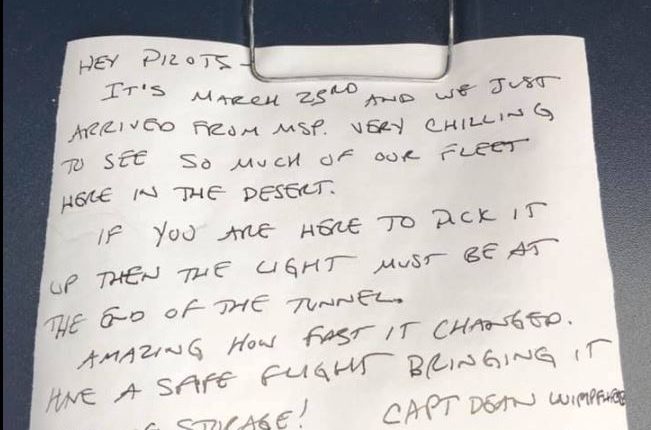 HEY PILOTS-
IT'S MARCH 23RD AND WE JUST
ARRIVED FROM MSP. VERY CHILLING
TO SEE SO MUCH OF OUR FLEET
HERE IN THE DESERT.
IF YOU ARE HERE TO PICK IT
UP THEN THE LIGHT MUST BE AT
THE END OF THE TUNNEL.
AMAZING HOW FAST IT CHANGED.
HAVE A SAFE FLIGHT BRINGING IT
STORAGE! CAPT DEAN